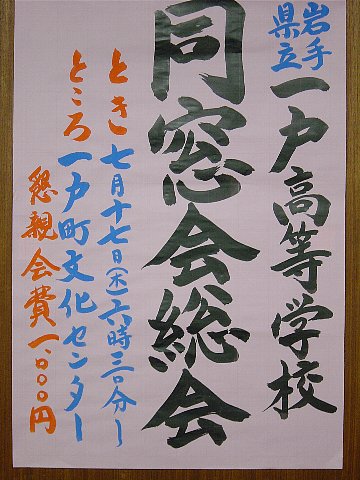 岩手県立一戸高等学校
同窓会総会
とき 七月十七日(木)六時三〇分～
ところ 一戸町文化センター
懇親会費一、〇〇〇円